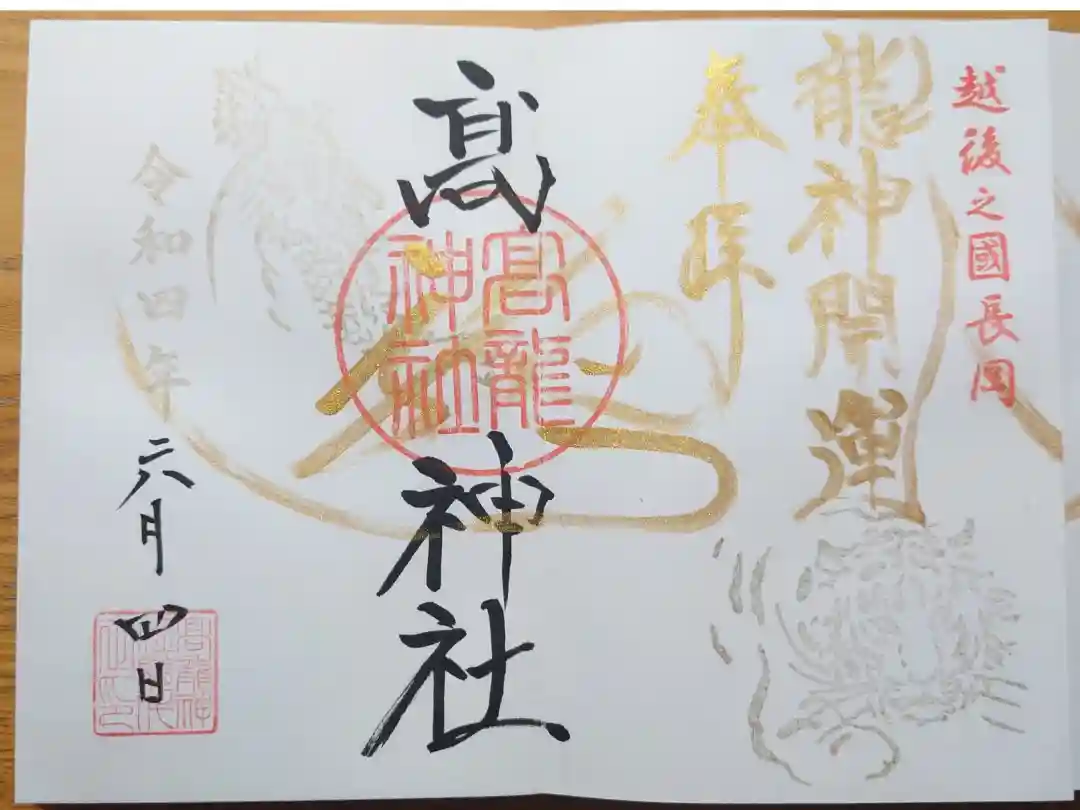 越後之國長岡
龍神開運
奉拝
髙龍神社
髙龍神社
令和四年六月四日